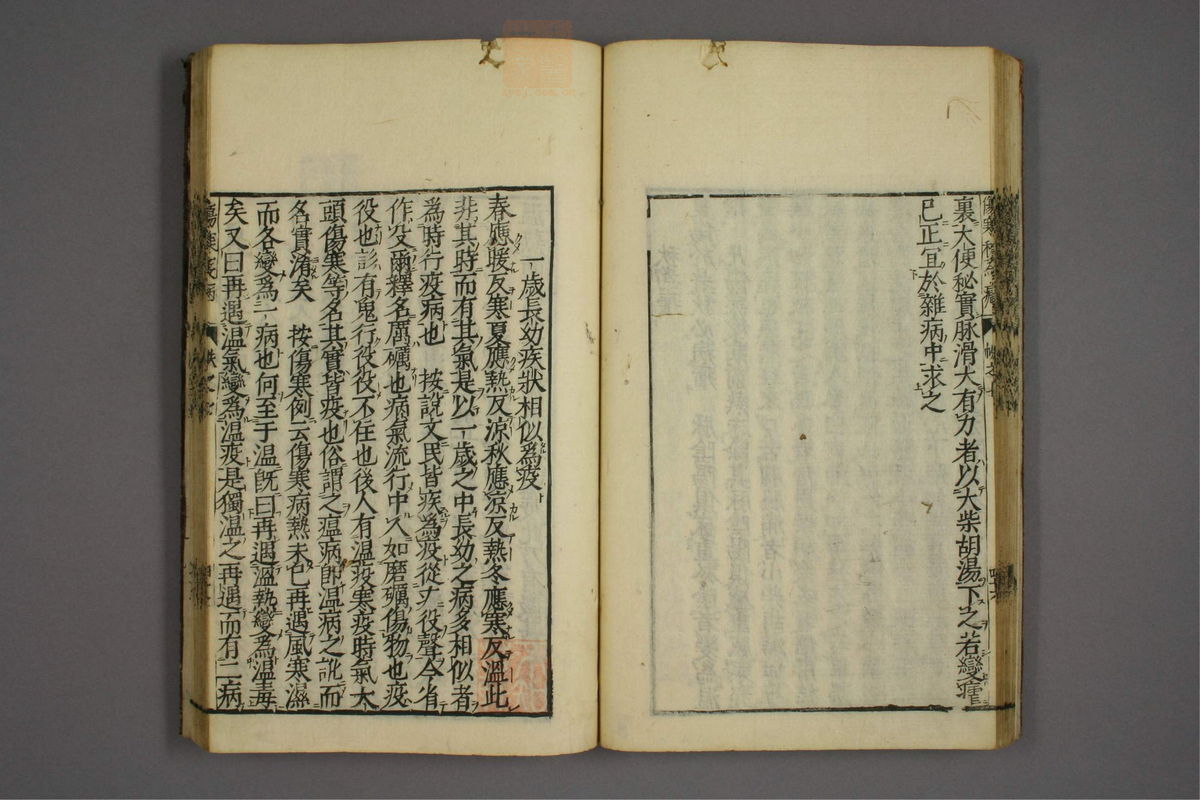 裏大便秘實脉滑大有力者以大柴胡湯下之若變瘧
已正宜於雜病中求之
一歲長幼疾狀相似爲疫
春應暖反寒夏應熱反涼秋應涼反熱冬應寒反溫此
非其時而有其氣是以一歲之中長幼之病多相似者
爲時行疫病也 按說文民皆疾爲疫從疒役聲今省
作殳爾釋名厲礪也病氣流行中人如磨礪傷物也疫
役也言有鬼行役役不住也後人有溫疫寒疫時氣大
頭傷寒等名其實皆疫也俗謂之瘟病即溫病之訛而
名實淆矣 按傷寒例云傷寒病熱未已再遇風寒濕
而各變爲一病也何至于溫旣曰再遇溫熱變爲溫毒
矣又曰再遇溫氣變爲溫疫是獨溫之再遇而有二病